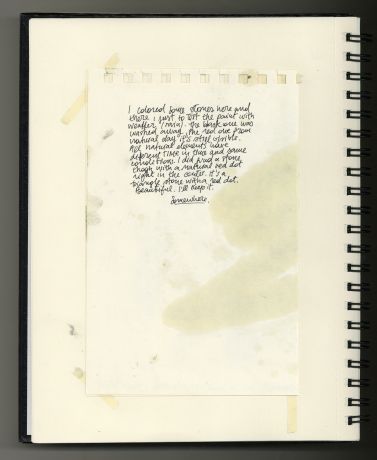 I colored some stones here and
there, just to test the paint with
weather (rain). The black one was
washed away. The red one from
natural clay it's still visible.
All natural elements have
different time in than and same
conditions. I did find a stone
though with a natural red dot
right in the center. It's a
purple stone with a red dot.
Beautiful. I'll keep it.
Somewhere.